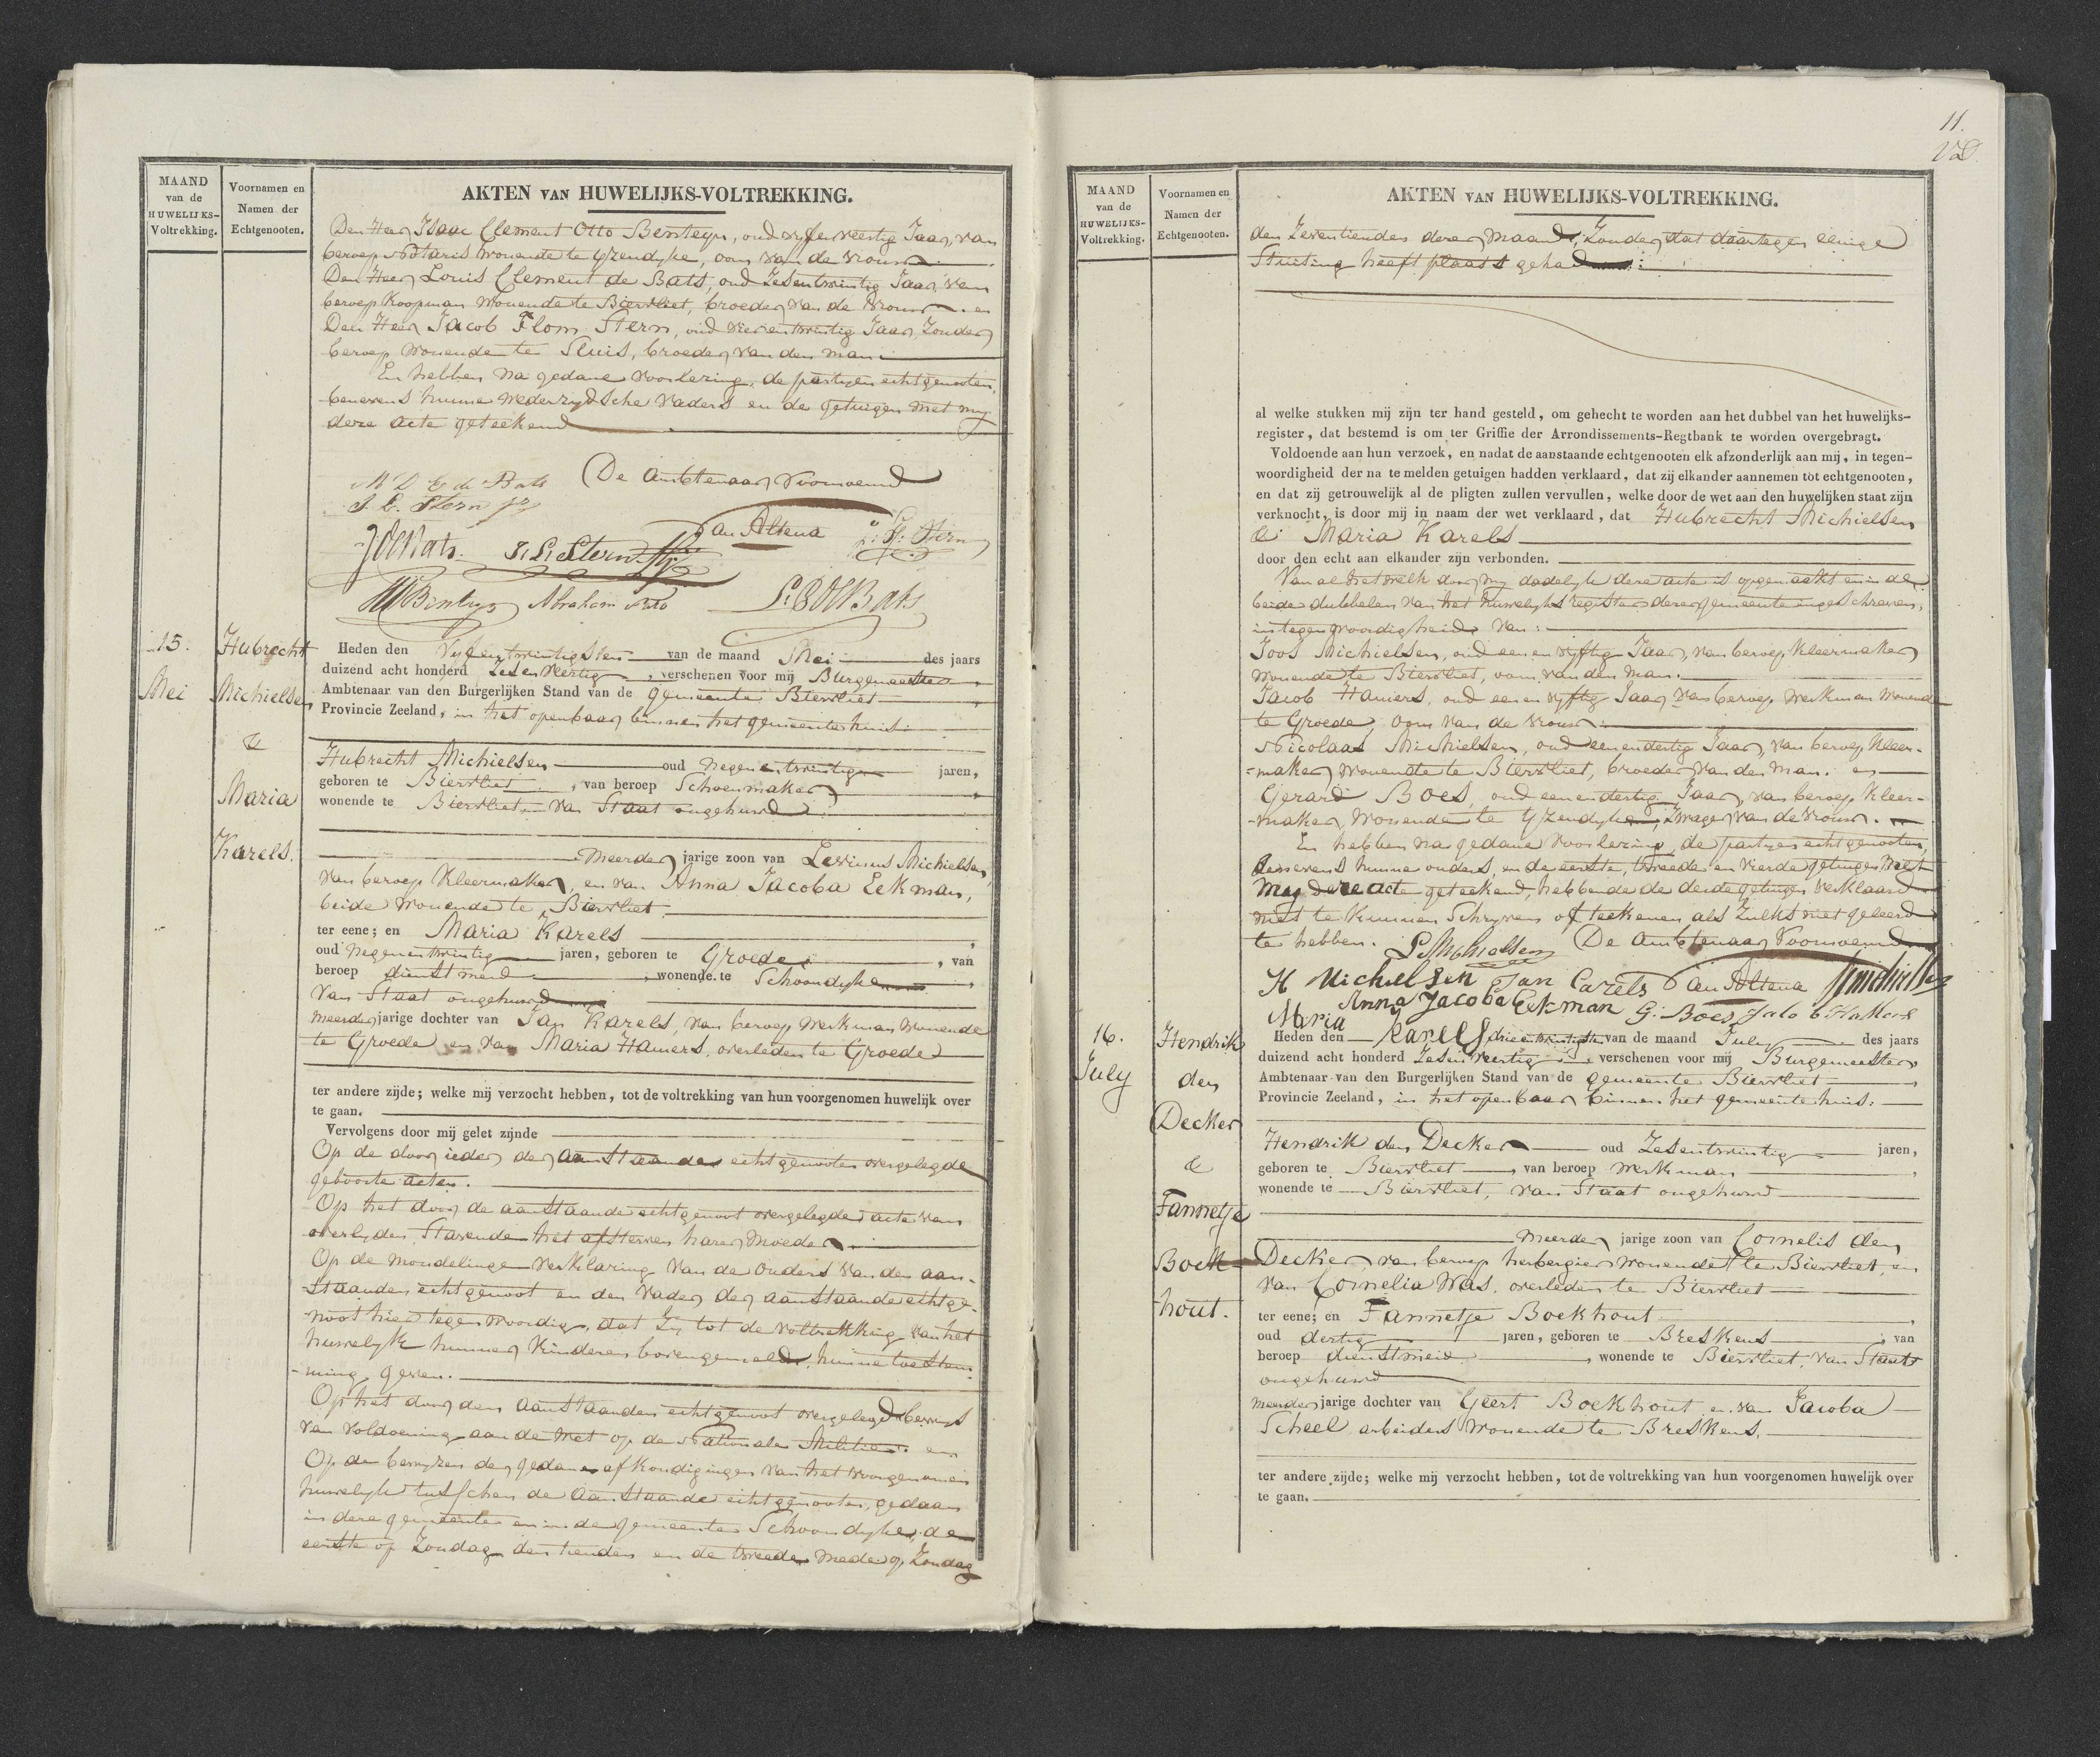 MAAND
van de
HUWELIJKS-
Voltrekking.
Voornamen en
Namen der
Echtgenooten.
AKTEN VAN HUWELIJKS-VOLTREKKING.
Den Heer Isaac Clement Otto Bersteyn, oud vyfenveertig Jaar, van
beroep Notaris wonende te Yzendyke, oom van de vrouw
Den Heer Louis Clement de Bats, oud Zesentwintig Jaar, van
beroep Koopman wonende te Biervliet, broeder van de Vrouw en
Den Heer Jacob Flom Stern, oud vierentwintig Jaar, Zonder
beroep wonende te Sluis, broeder van den man
En hebben na gedane voorlezing, de partyen echtgenooten,
benevens hunne wederzydsche vaders en de getuigen met my
deze acte geteekend
De Ambtenaar Voornoemd
J. L. Stern
Van Altena
J de Bats. J. L. Stern
Abraham
L: C de Bats
15.
Mei
Hubrecht
Michielsen
&
Maria
Karels.
Heden den Vyfentwintigsten van de maand Mei des jaars
duizend acht honderd Zesenveertig, verschenen voor mij Burgemeester
Ambtenaar van den Burgerlijken Stand van de gemeente Biervliet
Provincie Zeeland, in het openbaar binnen het gemeentehuis.
Hubrecht Michielsen oud Negenentwintig jaren,
geboren te Biervliet, van beroep Schoenmaker
wonende te Biervliet van Staat ongehuwd
Meerder jarige zoon van Levinus Michielsen,
van beroep Kleermaker, en van Anna Jacoba Eekman,
beide wonende te Biervliet
ter eene; en Maria Karels
oud Negenentwintig jaren, geboren te Groede, van
beroep dienstmeid, wonende te Schoondyke
van Staat ongehuwd
meerder jarige dochter van Jan Karels, van beroep werkman wonende
te Groede en van Maria Hamers, overleden te Groede
ter andere zijde; welke mij verzocht hebben, tot de voltrekking van hun voorgenomen huwelijk over
te gaan.
Vervolgens door mij gelet zijnde
Op de door ieder der aanstaande echtgenooten overgelegde
geboorte acten.
Op het door de aanstaande echtgenoot overgelegde acte van
overlyden, Stavende het afsterven harer Moeder
Op de mondelinge verklaring van de ouders van den aan-
staanden echtgenoot en den vader der aanstaande echtge-
noot hier tegenwoordig, dat zy tot de voltrekking van het
huwelyk hunner kinderen bovengemeld, hunne toestem-
ming geven.
Op het door den aanstaanden echtgenoot overgelegd bewys
van voldoening aan de Wet op de Nationale Militie. en
Op de bewyzen der gedane afkondigingen van het voorgenomen
huwelyk tusschen de aanstaande echtgenooten, gedaan
in deze gemeente en in de gemeente Schoondyke, de
eerste op Zondag den tienden en de tweede mede op Zondag
11.
MAAND
van de
HUWELIJKS-
Voltrekking.
Voornamen en
Namen der
Echtgenooten.
AKTEN VAN HUWELIJKS-VOLTREKKING.
den Zeventienden dezer maand, Zonder dat daartegen eenige
Stuiting heeft plaats gehad
al welke stukken mij zijn ter hand gesteld, om gehecht te worden aan het dubbel van het huwelijks-
register, dat bestemd is om ter Griffie der Arrondissements-Regtbank te worden overgebragt.
Voldoende aan hun verzoek, en nadat de aanstaande echtgenooten elk afzonderlijk aan mij, in tegen-
woordigheid der na te melden getuigen hadden verklaard, dat zij elkander aannemen tot echtgenooten,
en dat zij getrouwelijk al de pligten zullen vervullen, welke door de wet aan den huwelijken staat zijn
verknocht, is door mij in naam der wet verklaard, dat Hubrecht Michielsen
& Maria Karels
door den echt aan elkander zijn verbonden.
Van al hetwelk door my dadelyk deze acte is opgemaakt en in de
beide dubbelen van het huwelyks register dezer gemeente ingeschreven,
in tegenwoordigheid van:
Joos Michielsen, oud een en vyftig Jaar, van beroep Kleermaker
wonende te Biervliet, oom van den Man.
Jacob Hamers, oud een en vyftig Jaar van beroep werkman wonende
te Groede, oom van de vrouw
Nicolaas Michielsen, oud eenendertig Jaar, van beroep Kleer-
-maker wonende te Biervliet, broeder van den Man. en
Gerard Boes, oud eenendertig Jaar, van beroep Kleer-
-maker, wonende te Yzendyke, Zwager van de vrouw.
En hebben na gedane voorlezing, de partyen echtgenooten,
benevens hunne ouders, en de eerste, tweede en vierde getuigen met
my deze acte geteekend, hebbende de derde getuige verklaard
niet te kunnen Schryven of teekenen als Zulks niet geleerd
te hebben.
De Ambtenaar Voornoemd
H Michielsen Jan Carels Van Altena
Anna Jacoba Eekman G. Boes
Maria Karels
16.
July
Hendrik
den
Decker
&
Fannetje
Boek-
hout.
Heden den drieentwintigsten van de maand July des jaars
duizend acht honderd Zesenveertig verschenen voor mij Burgemeester
Ambtenaar van den Burgerlijken Stand van de gemeente Biervliet
Provincie Zeeland, in het openbaar binnen het gemeentehuis.
Hendrik den Decker oud Zesentwintig jaren,
geboren te Biervliet, van beroep Werkman
wonende te Biervliet, van Staat ongehuwd
Meerder jarige zoon van Cornelis den
Decker, van beroep herbergier wonende te Biervliet, en
van Cornelia Was, overleden te Biervliet
ter eene; en Fannetje Boekhout
oud dertig jaren, geboren te Breskens, van
beroep dienstmeid, wonende te Biervliet, van Staat
ongehuwd
meerder jarige dochter van Geert Boekhout en van Jacoba
Scheel arbeiders wonende te Breskens.
ter andere zijde; welke mij verzocht hebben, tot de voltrekking van hun voorgenomen huwelijk over
te gaan.